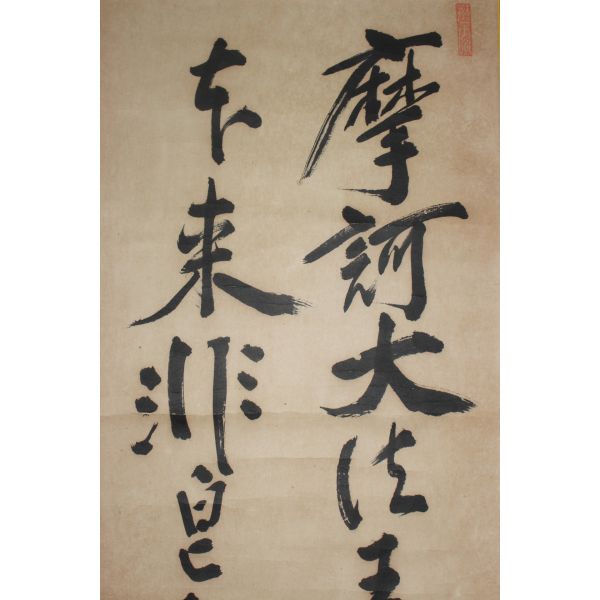 摩訶大法王
本来非皂